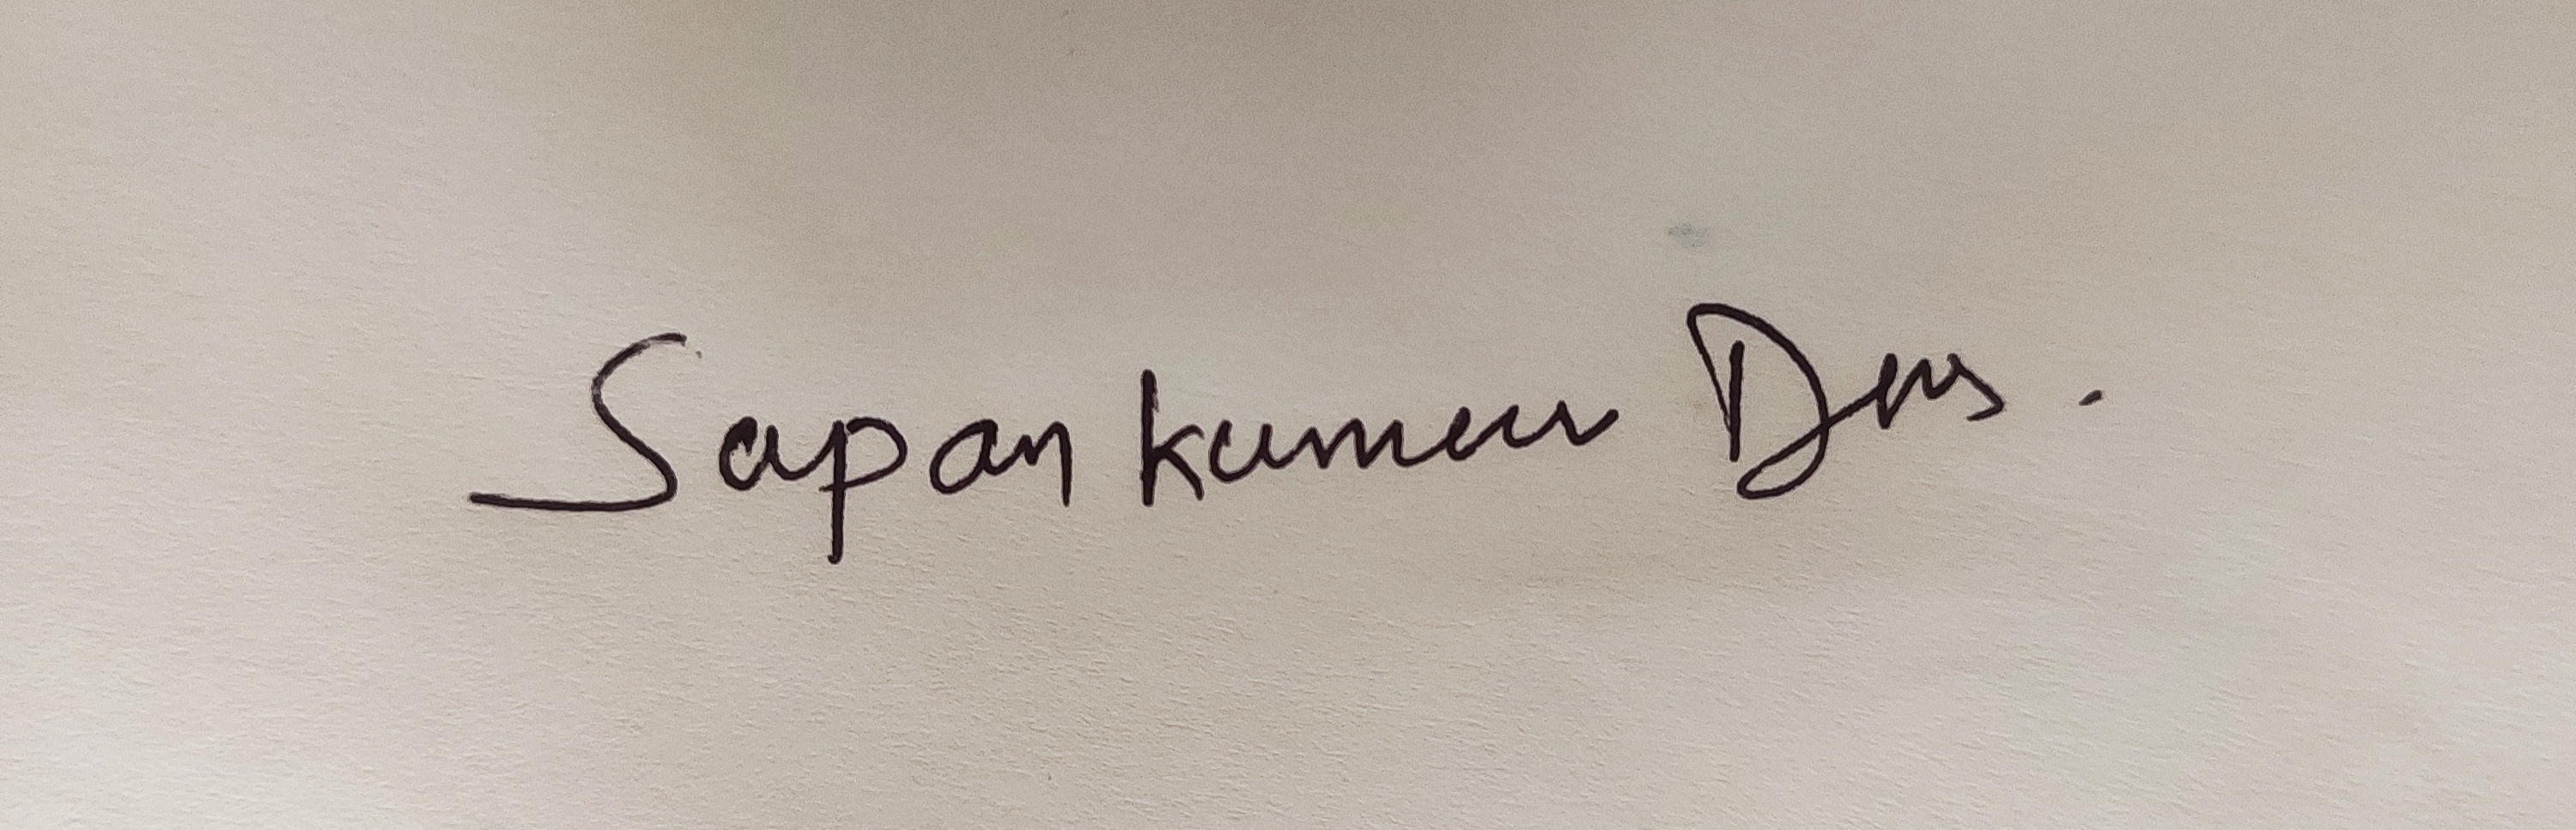 Sapan kumar Das.